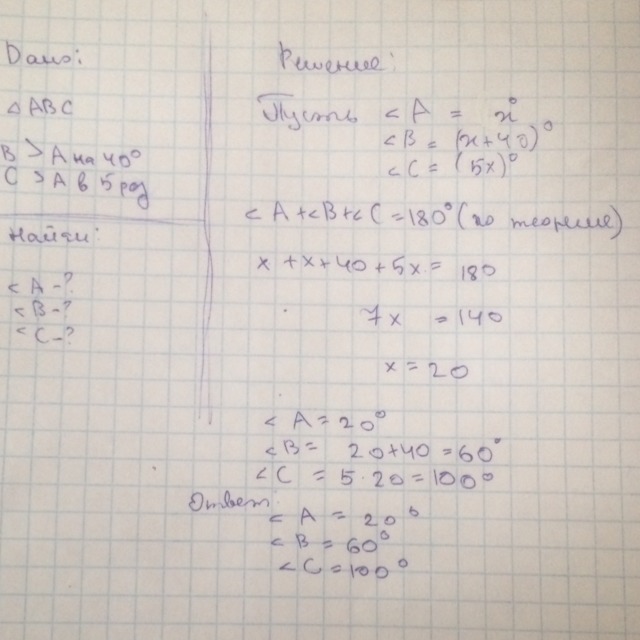 Дано:
△ ABC
B > A на 40°
C > A в 5 раз
Найти:
< A - ?
< B - ?
< C - ?
Решение:
Пусть < A = x°
< B = (x+40)°
< C = (5x)°
< A + < B + < C = 180° (по теореме)
x + x + 40 + 5x = 180
7x = 140
x = 20
< A = 20°
< B = 20+40 = 60°
< C = 5 · 20 = 100°
Ответ:
< A = 20°
< B = 60°
< C = 100°